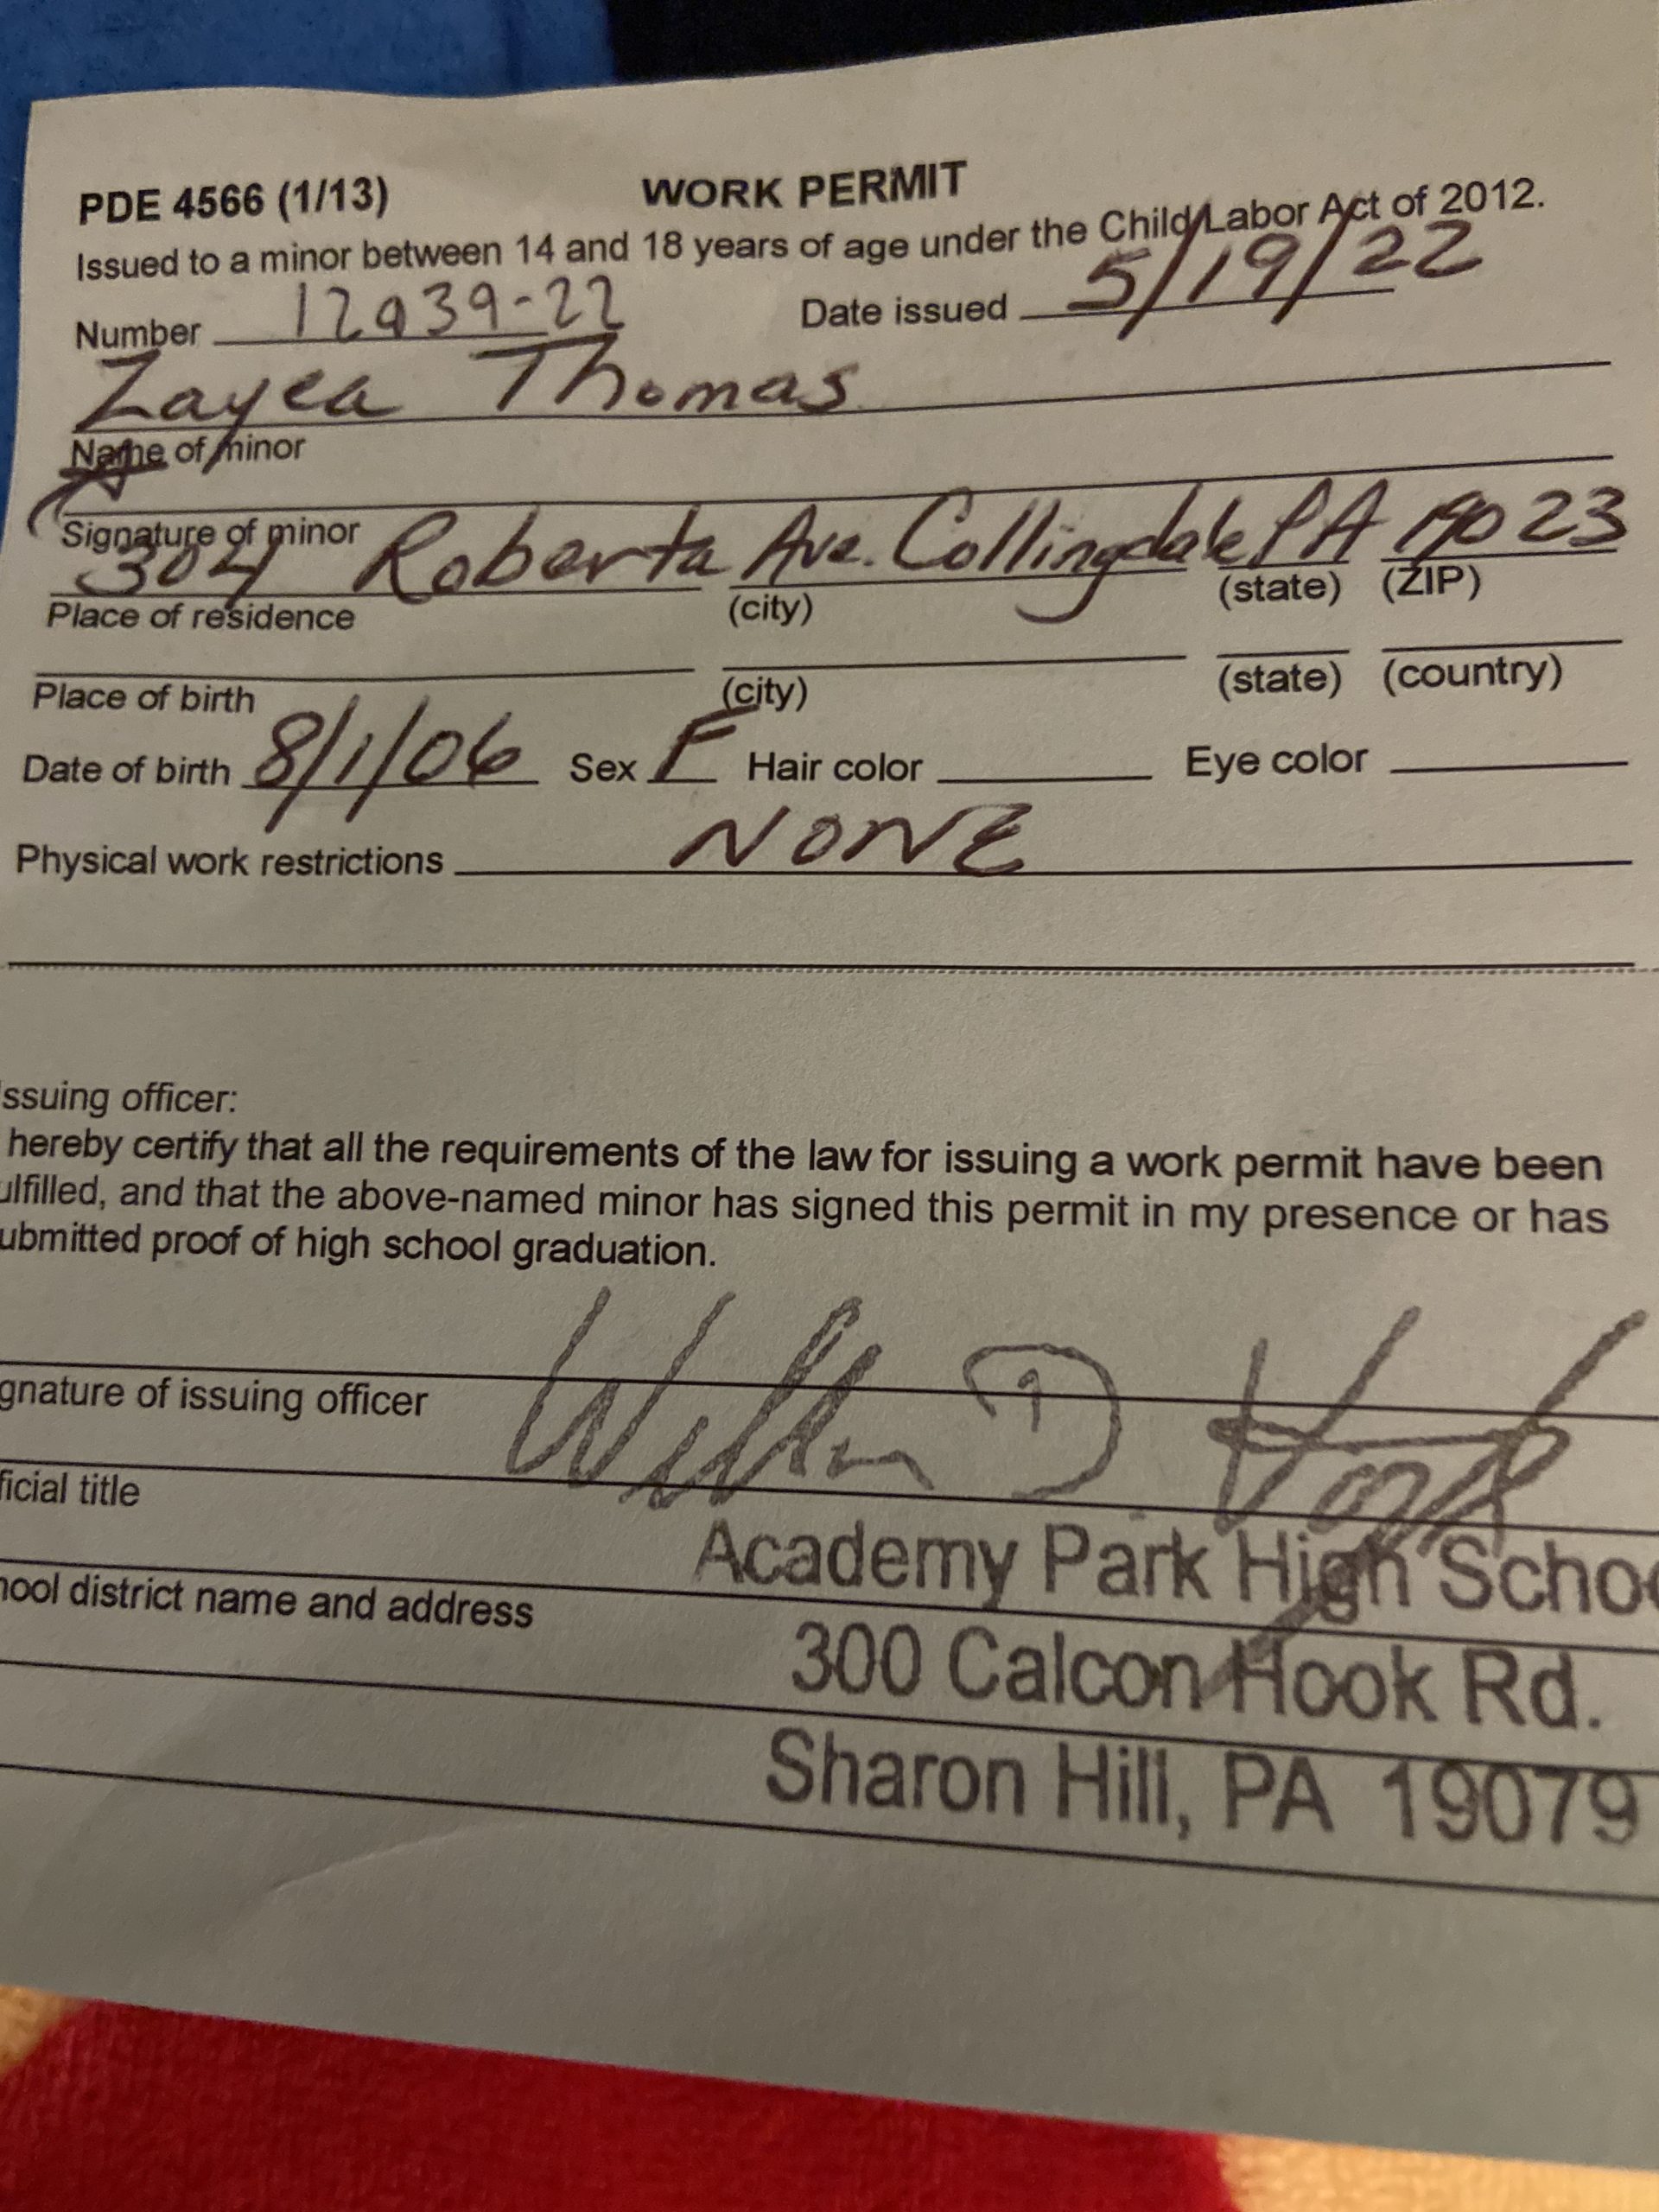 PDE 4566 (1/13) WORK PERMIT
Issued to a minor between 14 and 18 years of age under the Child Labor Act of 2012.
Number 12939-22 Date issued 5/19/22
Zayea Thomas
Name of minor
Signature of minor
304 Roberta Ave. Collingdale PA 19023
Place of residence (city) (state) (ZIP)
Place of birth (city) (state) (country)
Date of birth 8/1/06 Sex F Hair color Eye color
Physical work restrictions NONE
ssuing officer:
hereby certify that all the requirements of the law for issuing a work permit have been
ulfilled, and that the above-named minor has signed this permit in my presence or has
ubmitted proof of high school graduation.
gnature of issuing officer
ficial title
Academy Park High Schoo
hool district name and address
300 Calcon Hook Rd.
Sharon Hill, PA 19079